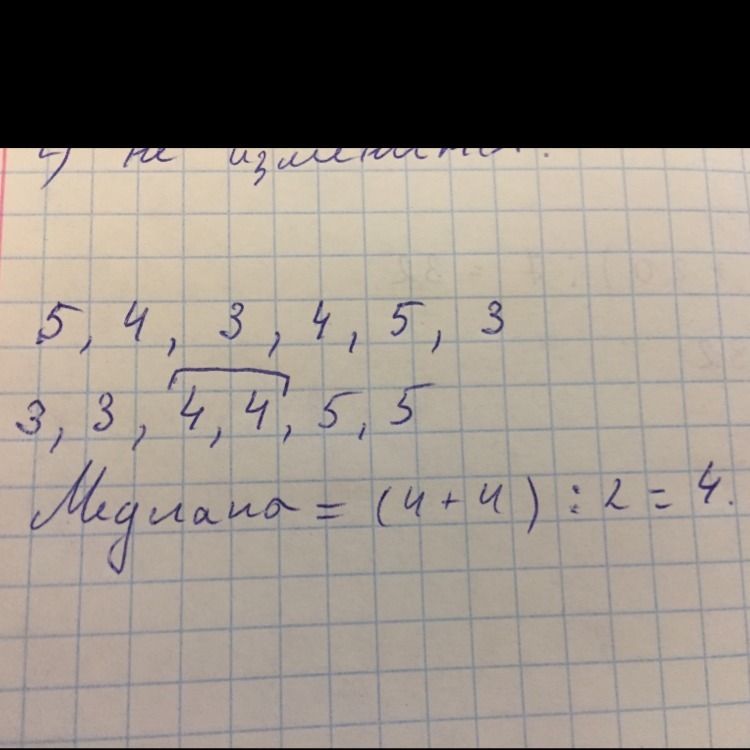 2) не изменится.
5, 4, 3, 4, 5, 3
3, 3, 4, 4, 5, 5
Медиана = (4 + 4) : 2 = 4.